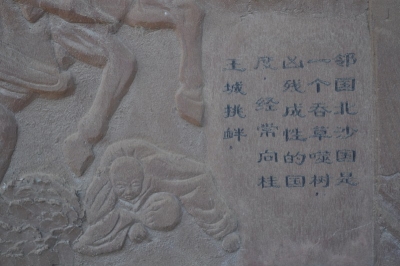 邻国北沙国是
一个吞草噬树，
凶残成性的国
度，经常向桂
王城挑衅，